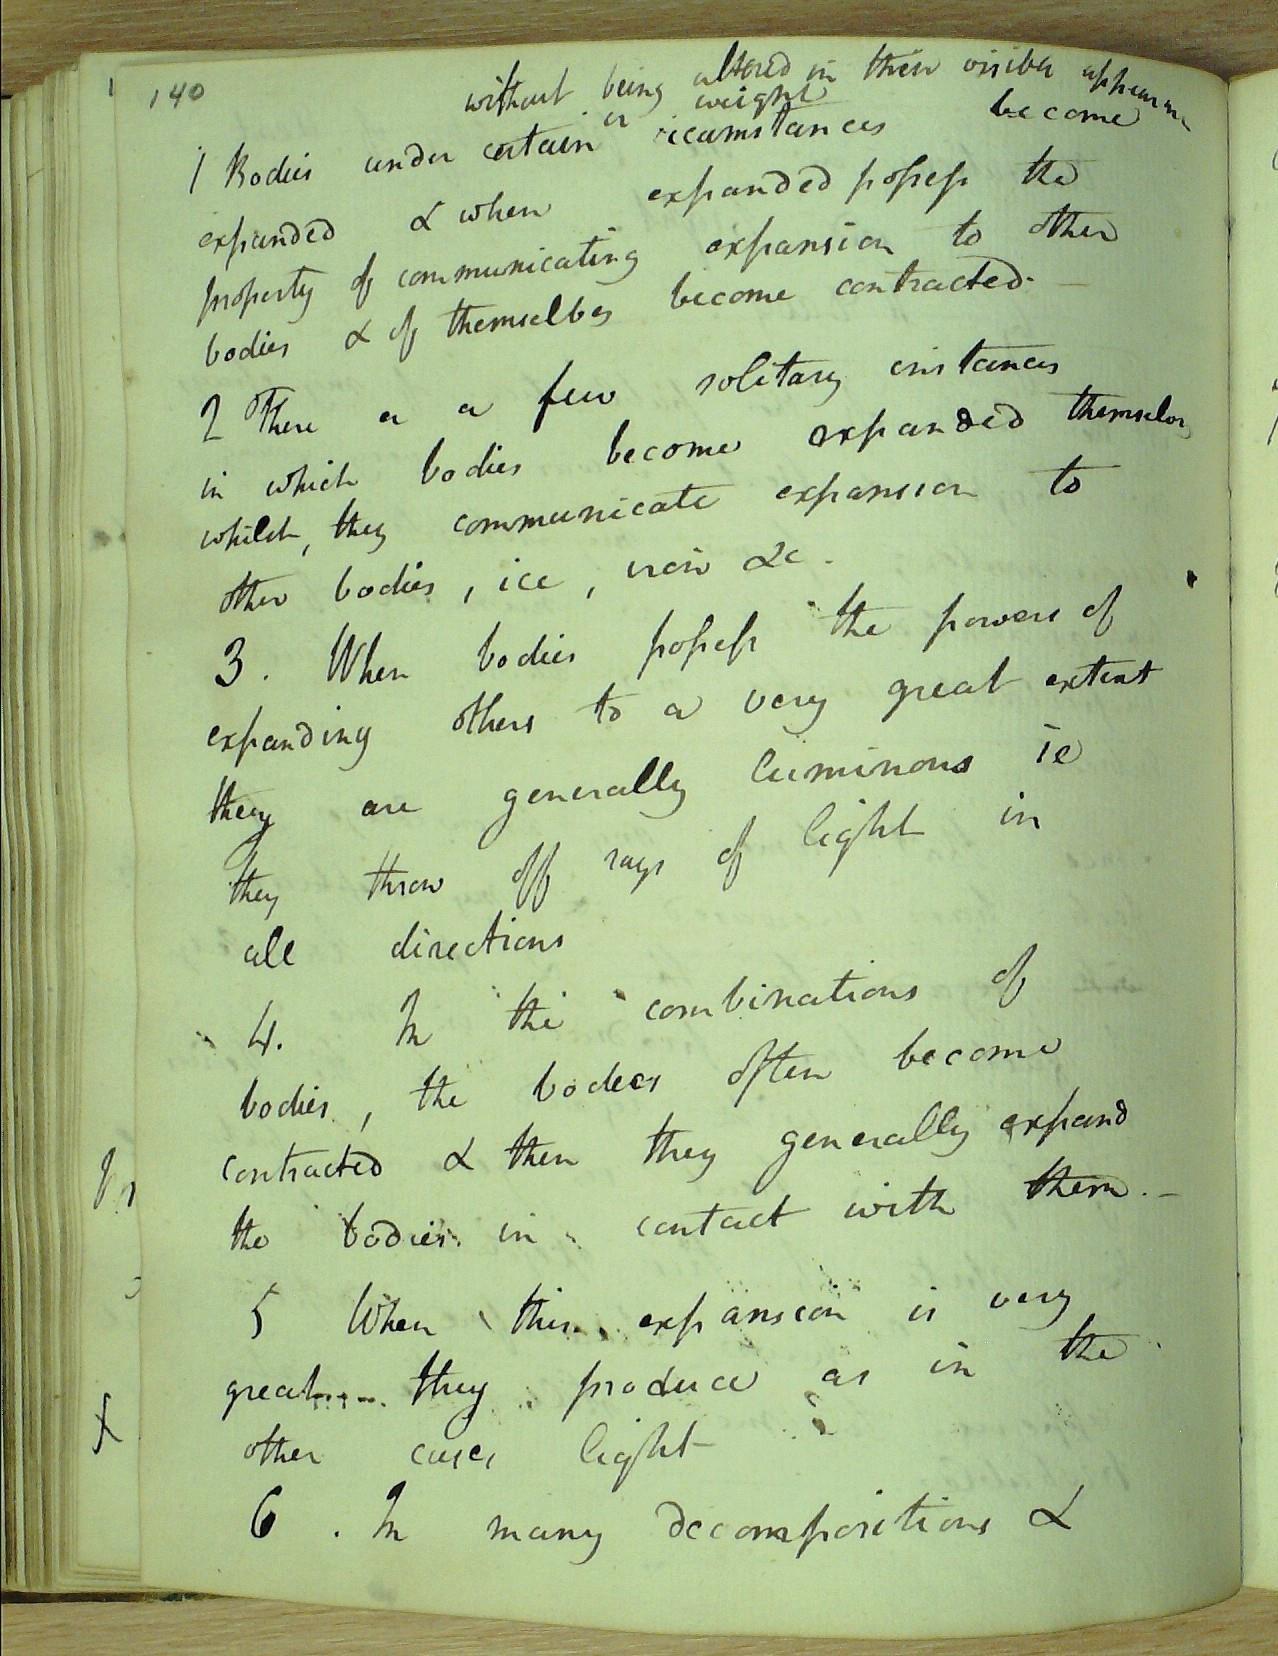 140
without being altered in their visible appearance
or weight
1 Bodies under certain circumstances become
expanded & when expanded possess the
property of communicating expansion to other
bodies & of themselves become contracted. —
2 There a a few solitary instances
in which bodies become expanded themselves
whilst, they communicate expansion to
other bodies, ice, iron &c.
3. When bodies possess the powers of
expanding others to a very great extent
they are generally luminous ie
they throw off rays of light in
all directions
4. In the combinations of
bodies, the bodies often become
contracted & then they generally expand
the bodies in contact with them. —
5 When this expansion is very
great they produce as in the
other cases light
6. In many decompositions &